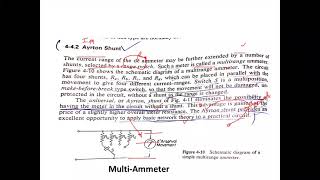 4-4.2 Ayrton Shunt
The current range of the dc ammeter may be further extended by a number of
shunts, selected by a range switch. Such a meter is called a multirange ammeter.
Figure 4-10 shows the schematic diagram of a multirange ammeter. The circuit
has four shunts, which can be placed in parallel with the
movement to give four different current ranges. Switch S is a multiposition,
make-before-break type switch, so that the movement will not be damaged,
protected in the circuit, without a shunt as the range is changed.
The universal, or Ayrton, shunt of Fig. 4-11 eliminates the possibility of
having the meter in the circuit without a shunt. This advantage is gained at the
price of a slightly higher overall meter resistance. The Ayrton shunt provides an
excellent opportunity to apply basic network theory to a practical circuit.
D'Arsonval
Movement
Figure 4-10 Schematic diagram of a
simple multirange ammeter.
Multi-Ammeter